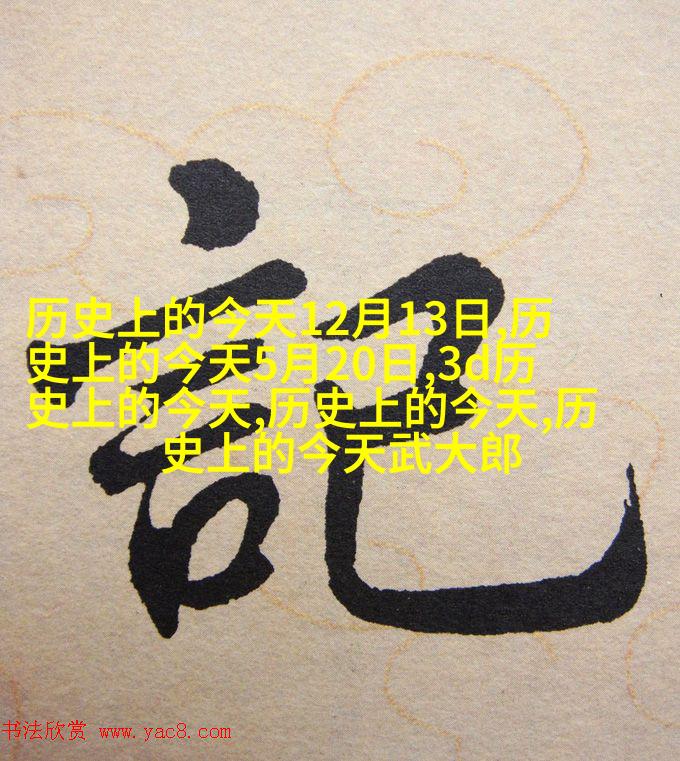 記
历史上的今天12月13日,历
史上的今天5月20日,3d历
史上的今天,历史上的今天,历
史上的今天武大郎
书法欣赏 www.yac8.com